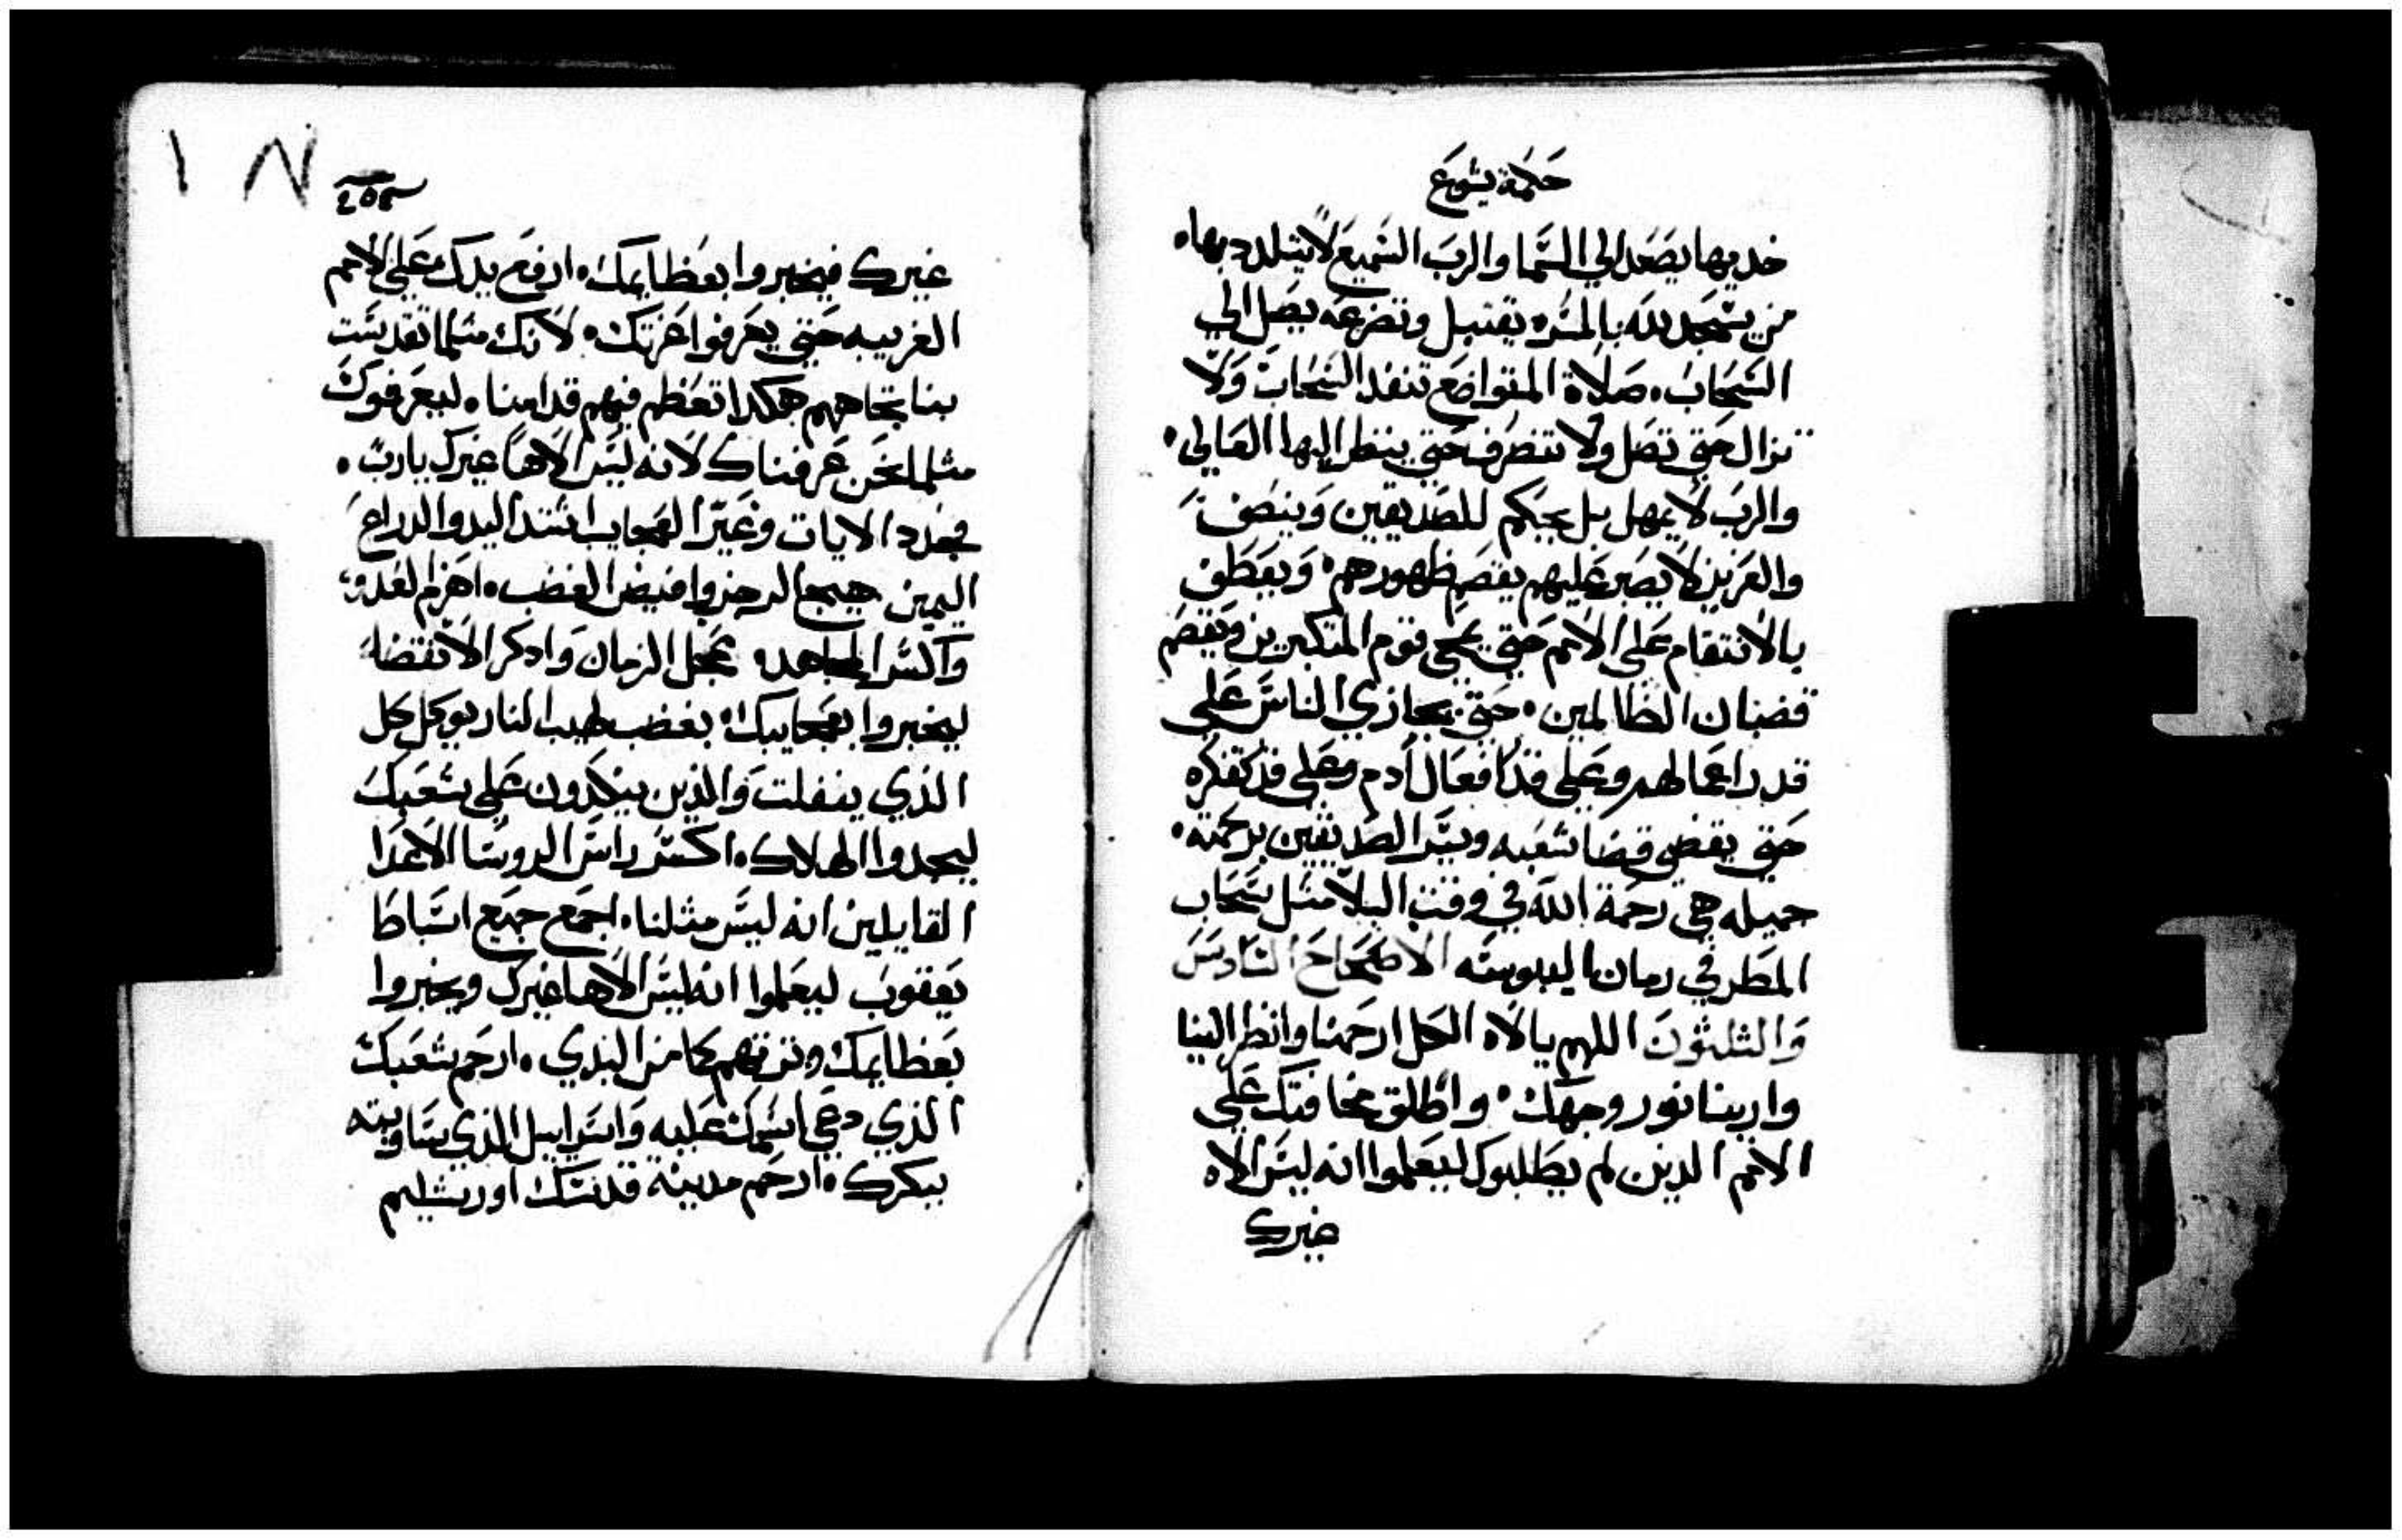 حكمة يشوع
خديها يصعد الي السما والرب السميع لا يتلدد بها.
من يسجد لله بالمسره يقتبل وتضرعه يصل الي
السحاب. صلاة المتواضع تنفد السحاب ولا
تزال حتي تصل ولا تنصرف حتي ينظر اليها العالي.
والرب لا يمهل بل يحكم للصديقين وينصف
والعزيز لا يصبر عليهم يقصم ظهورهم. ويعطف
بالانتقام علي الامم حتي يمحي قوم المتكبرين ويقصم
قضبان الظالمين. حتي يجازي الناس علي
قدر اعمالهم وعلي قدر افعال ادم وعلي قدر تفكره
حتي يقضي قضا شعبه ويسر الصديقين برحمته.
جميله هي رحمة الله في وقت البلا مثل سحاب
المطر في زمان اليبوسه الاصحاح السادس
والثلثون اللهم يا الاه الكل ارحمنا وانظر الينا
وارينا نور وجهك. واطلق مخافتك علي
الامم الدين لم يطلبوك ليعلموا انه ليس الاه
غيرك
غيرك فيخبروا بعظايمك. ارفع يدك علي الامم
الغريبه حتي يعرفوا عزتك. لانك مثلما تقدست
بنا تجاههم هكدا تعظم فيهم قدامنا. ليعرفوك
مثلما نحن عرفناك لانه ليس الاهاً غيرك يارب.
فجدد الايات وغير العجايب اشتد اليد والدراع
اليمين هيج الرجز وافيض الغضب. اهزم العدو
واكسر المجاهد. عجل الزمان وادكر الانقضا
ليخبروا بعجايبك. بغضب لهيب النار يوكل كل
الذي ينفلت والذين ينكدون علي شعبك
ليجدوا الهلاك. اكسر راس الروسا الاعدا
القايلين انه ليس مثلنا. اجمع جميع اسباط
يعقوب ليعلموا انه ليس الاها غيرك ويخبروا
بعظايمك وترثهم كما من البدي. ارحم شعبك
الذي دعي اسمك عليه واسراييل الذي ساويته
ببكرك. ارحم مدينة قدسك اورشليم